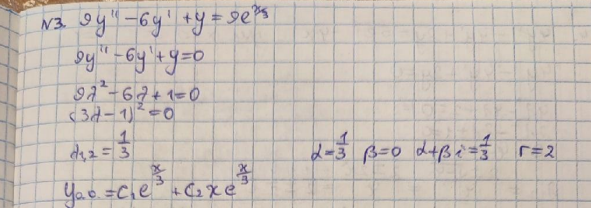 N3. 9y'' - 6y' + y = 9e^{x/3}
9y'' - 6y' + y = 0
9λ² - 6λ + 1 = 0
(3λ - 1)² = 0
λ₁,₂ = 1/3 α = 1/3 β = 0 α + βi = 1/3 r = 2
y₀₀ = C₁e^{x/3} + C₂xe^{x/3}